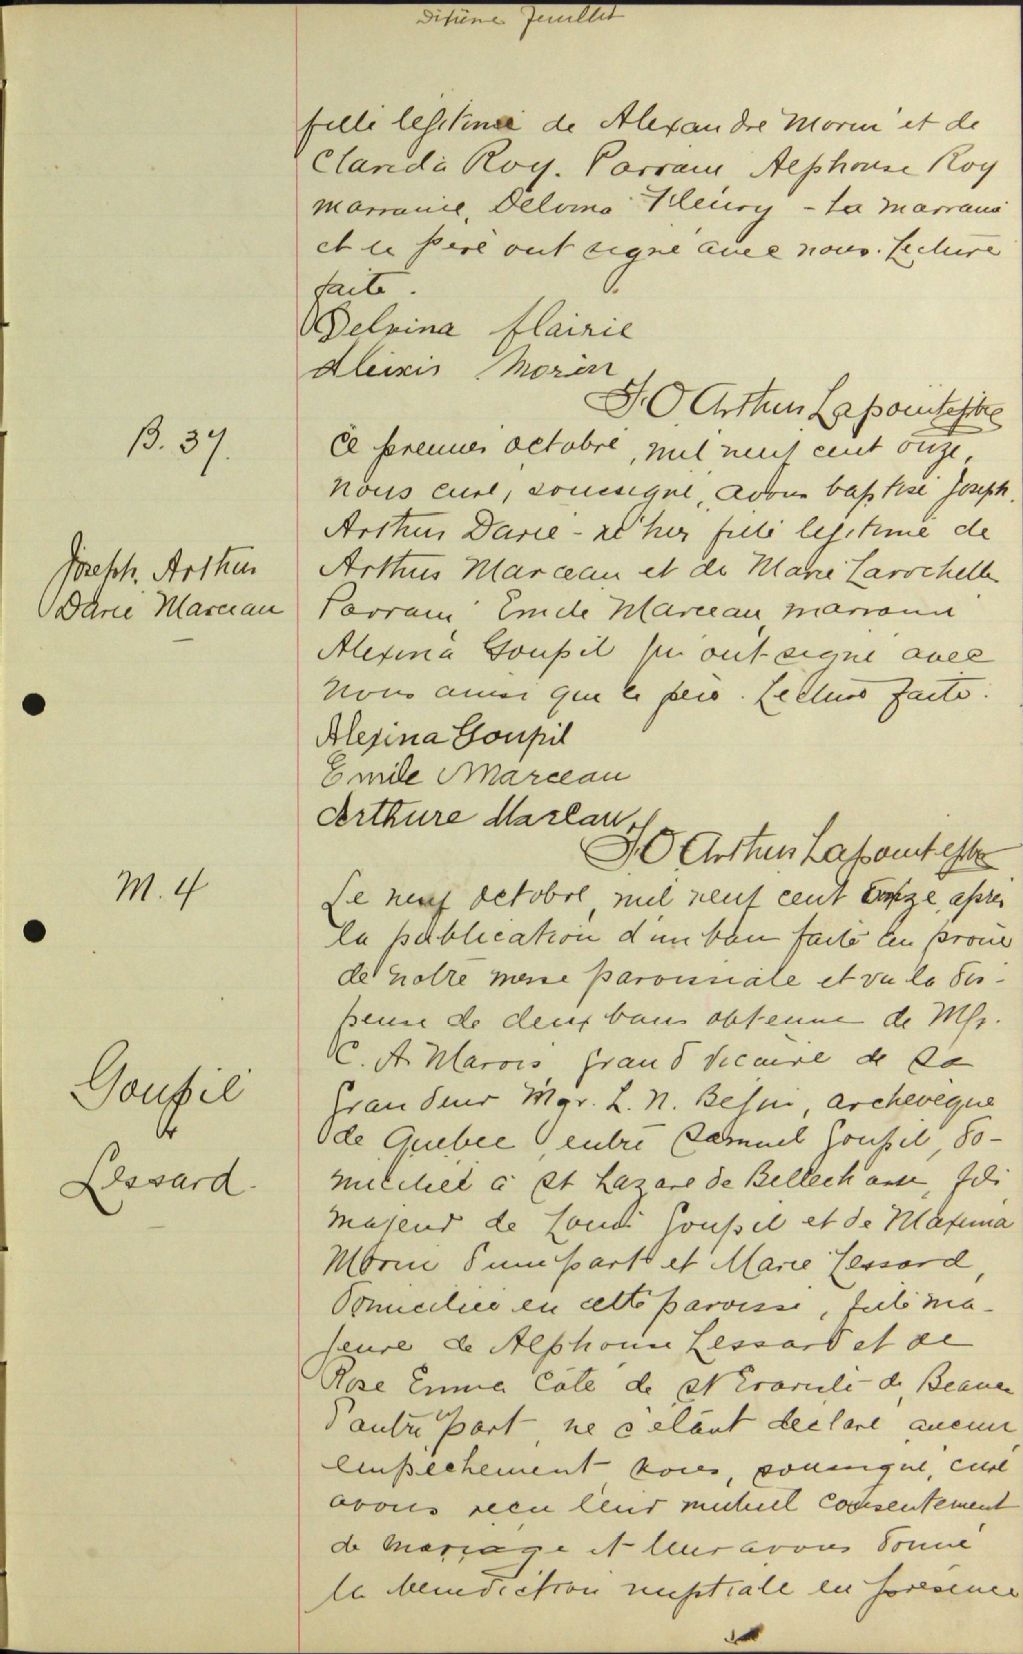 Dixième feuillet
fille légitime de Alexandre Morin et de
Clarida Roy. Parrain Alphonse Roy
marraine, Delvina Fleury - La marraine
et le père ont signé avec nous. Lecture
faite.
Delvina flairie
Aleixis Morin
J. O Arthur Lapointe ptre
B. 37.
Ce premier octobre, mil neuf cent onze,
nous curé, soussigné, avons baptisé Joseph
Joseph. Arthur
Darie Marceau
Arthur Darie - né hier fils légitime de
Arthur Marceau et de Marie Larochelle
Parrain Emile Marceau, marraine
Alexina Goupil qui ont signé avec
nous ainsi que le père. Lecture faite.
Alexina Goupil
Emile Marceau
Arthure Marcau
J. O Arthur Lapointe ptre
M. 4
Le neuf octobre, mil neuf cent onze, après
la publication d'un ban faite au prône
de notre messe paroissiale et vu la dis-
pense de deux bans obtenue de Mgr.
C. A. Marois, grand vicaire de Sa
Goupil
&
Lessard.
Grandeur Mgr. L. N. Bégin, archevêque
de Québec, entre Samuel Goupil, do-
micilié à St Lazare de Bellechasse, fils
majeur de Louis Goupil et de
Morin d'une part et Marie Lessard,
domiciliée en cette paroisse, fille ma-
jeure de Alphonse Lessard et de
Rose Emma Côté de St de Beauce
d'autre part, ne s'étant déclaré aucun
empêchement nous, soussigné, curé
avons reçu leur mutuel consentement
de mariage et leur avons donné
la bénédiction nuptiale en présence